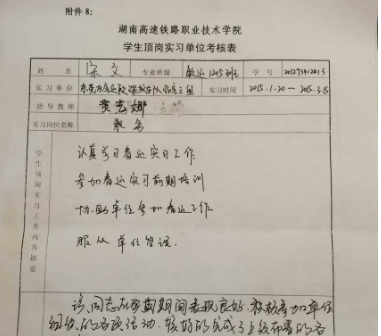 附件8：
湖南高速铁路职业技术学院
学生顶岗实习单位考核表
姓 名 文 专业班级 铁运1205班 学 号
实习单位 实习时间 2015.1.20—2015.3.15
指导教师 黄 娜
实习岗位名称 乘务
学生顶岗实习工作内容摘要
认真学习春运实习工作
参加春运实习前期培训
协助单位参加春运工作
服从单位管理.
该同志在 期间表现良好, 积极参加单位
组织的各项活动, 较好的完成了上级布置的各